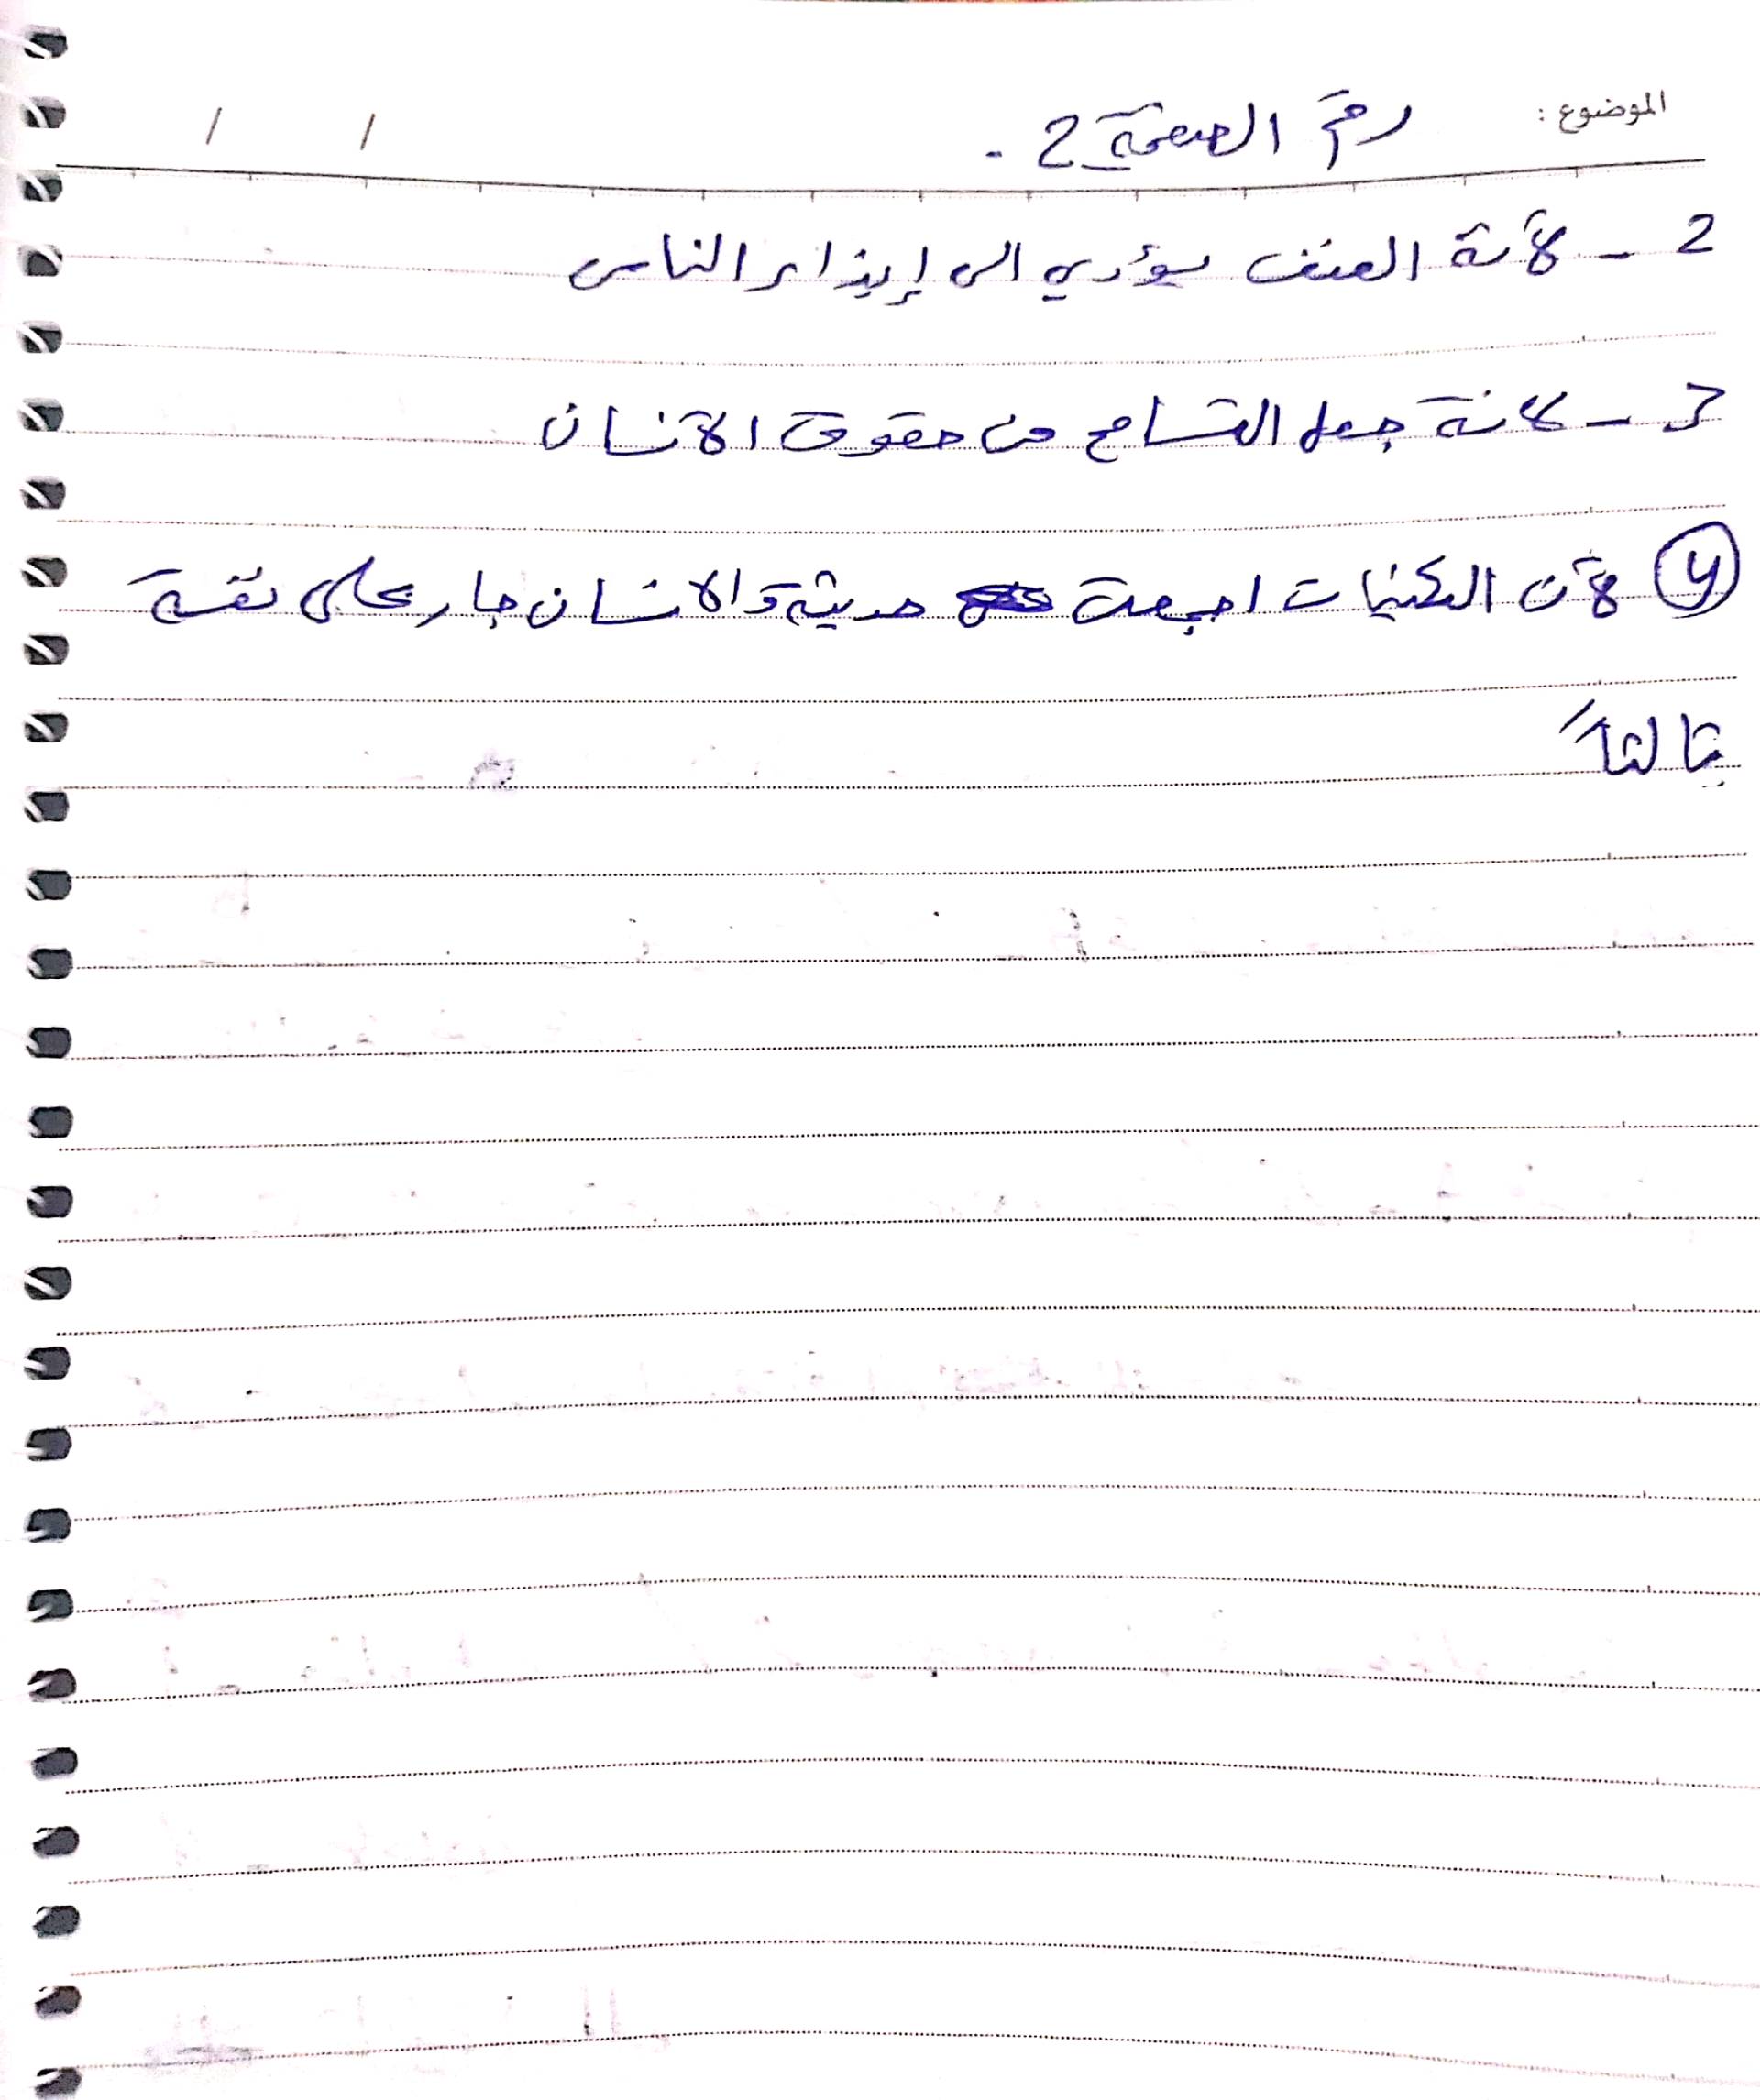 الموضوع : رقم الصفحة 2 .
/ /
2 - لأنة العنف يؤدي الى إيذاء الناس
3 - لانة جعل التسامح من حقوق الانسان
لأن اجمعت حديثة والانسان جار على نفسة
ثالثاً